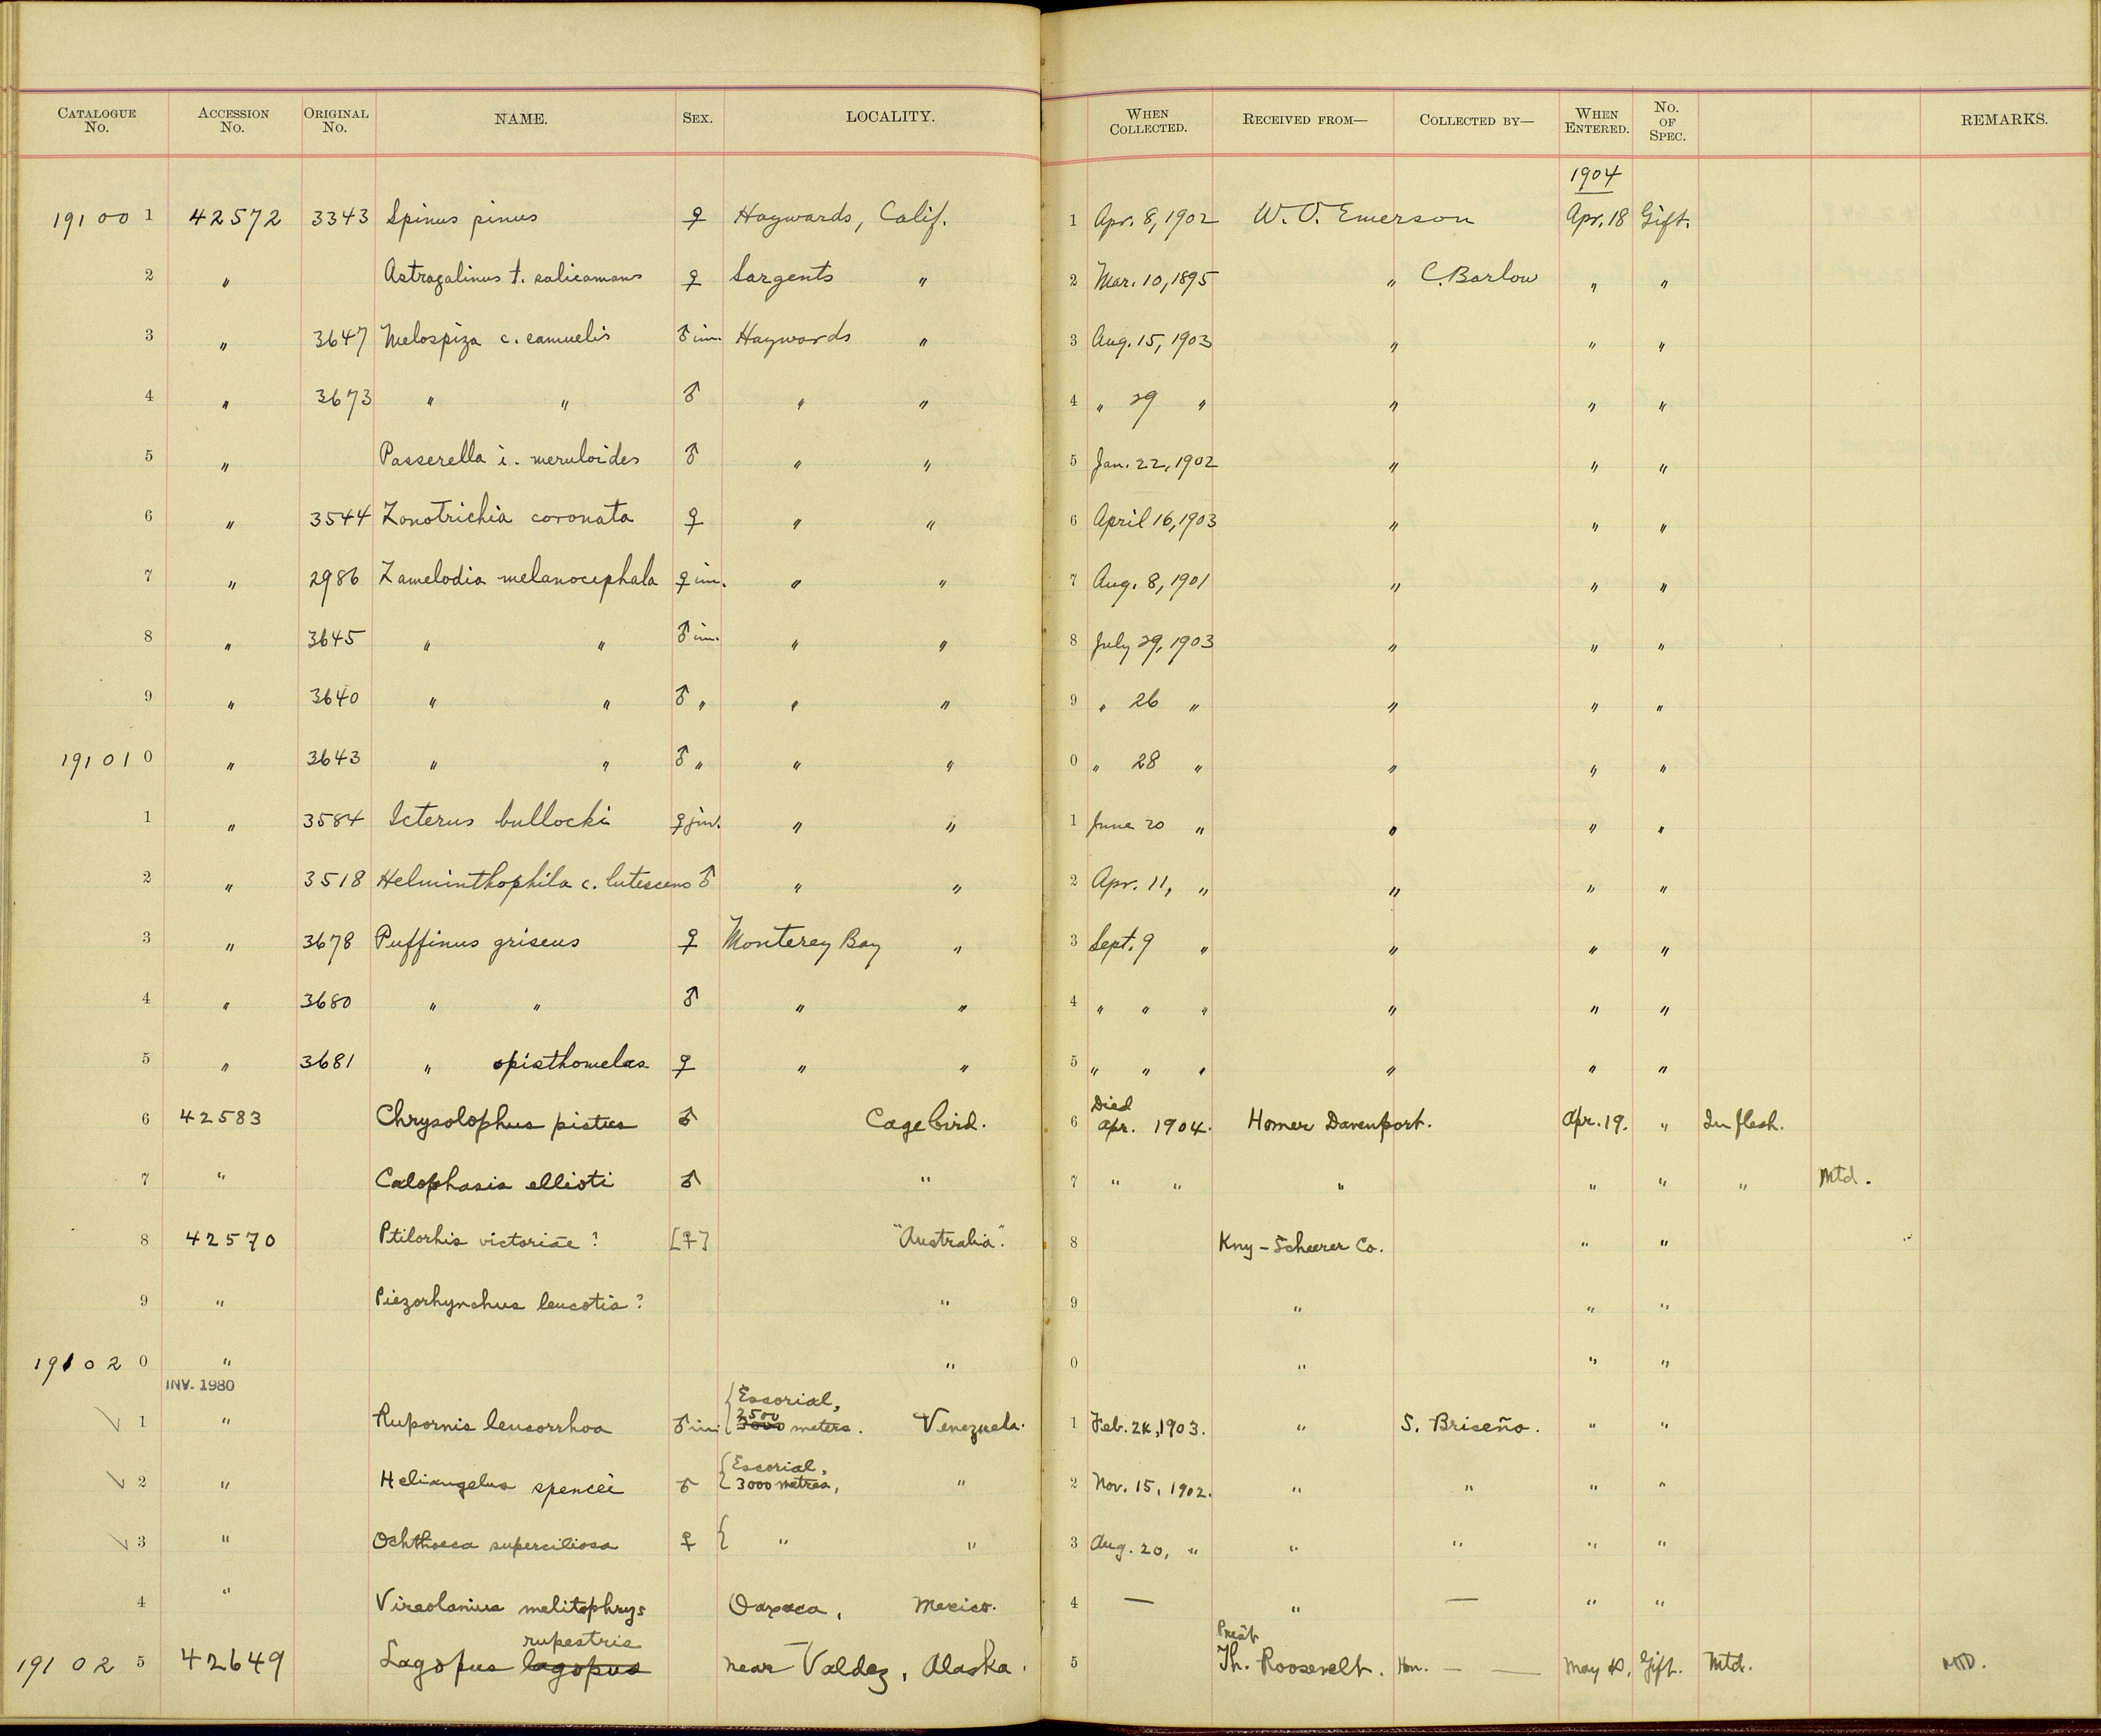 CATALOGUE No. ACCESSION No. ORIGINAL No. NAME. SEX. LOCALITY. WHEN COLLECTED. RECEIVED FROM— COLLECTED BY— WHEN ENTERED. No. OF SPEC. REMARKS.
1904
19100 1 42572 3343 Spinus pinus ♀ Haywards, Calif. 1 Apr. 8, 1902 W. O. Emerson Apr. 18 Gift.
2 " Astragalinus t. salicamans ♀ Sargents " 2 Mar. 10, 1895 " C. Barlow " "
3 " 3647 Melospiza c. samuelis ♂ im. Haywards " 3 Aug. 15, 1903 " " "
4 " 3673 " " ♂ " " 4 " 29 " " " "
5 " Passerella i. meruloides ♂ " " 5 Jan. 22, 1902 " " "
6 " 3544 Zonotrichia coronata ♀ " " 6 April 16, 1903 " " "
7 " 2986 Zamelodia melanocephala ♀ im. " " 7 Aug. 8, 1901 " " "
8 " 3645 " " ♂ im. " " 8 July 29, 1903 " " "
9 " 3640 " " ♂ " " " 9 " 26 " " " "
19101 0 " 3643 " " ♂ " " " 0 " 28 " " " "
1 " 3584 Icterus bullocki ♀ juv. " " 1 June 20 " " " "
2 " 3518 Helminthophila c. lutescens ♂ " " 2 Apr. 11, " " " "
3 " 3678 Puffinus griseus ♀ Monterey Bay " 3 Sept. 9 " " " "
4 " 3680 " " ♂ " " 4 " " " " " "
5 " 3681 " opisthomelas ♀ " " 5 " " " " " "
6 42583 Chrysolophus pictus ♂ Cage bird. 6 Died Apr. 1904. Homer Davenport. Apr. 19. " In flesh.
7 " Calophasis ellioti ♂ " 7 " " " " " " Mtd.
8 42570 Ptilorhis victoriae ? [♀] "Australia". 8 Kny-Scheerer Co. " "
9 " Piezorhynchus leucotis ? " 9 " " "
19102 0 " " 0 " " "
INV. 1980
1 " Rupornis leucorrhoa ♂ im { Escorial, 2500 3000 meters. Venezuela. 1 Feb. 24, 1903. " S. Briceño. " "
2 " Heliangelus spencei ♂ { Escorial, 3000 metres, " 2 Nov. 15, 1902. " " " "
3 " Ochthoeca superciliosa ♀ { " " 3 Aug. 20, " " " " "
4 " Vireolanius melitophrys Oaxaca, Mexico. 4 — " — " "
rupestris Prest.
19102 5 42649 Lagopus lagopus near Valdez, Alaska. 5 Th. Roosevelt. Hon. — — May Gift. Mtd. MTD.